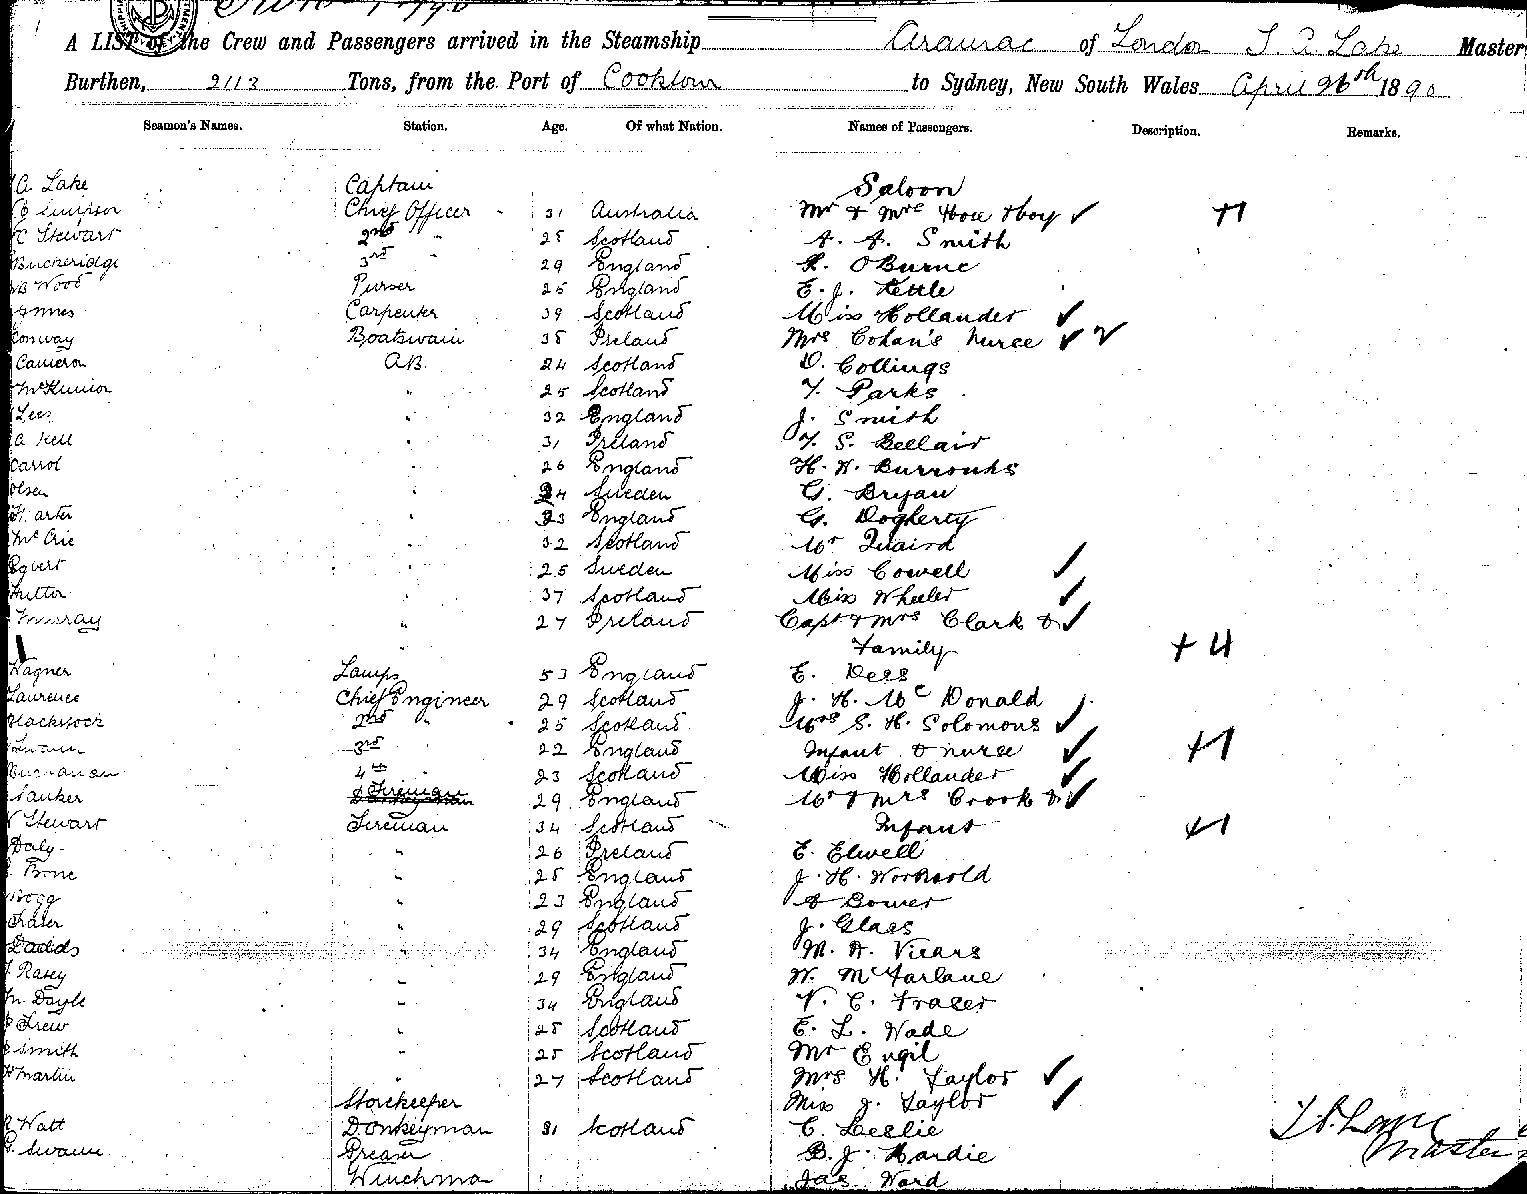 A LIST of the Crew and Passengers arrived in the Steamship of London T. A. Lake Master
Burthen, 2113 Tons, from the Port of Cooktown to Sydney, New South Wales April 26th 1890
Seamen's Names. Station. Age. Of what Nation. Names of Passengers. Description. Remarks.
A. Lake Captain Saloon
Simpson Chief Officer 31 Australia Mr & Mrs & boy ✓ +1
Stewart 2nd " 25 Scotland A. A. Smith
Buckeridge 3rd " 29 England R. OBurne
Wood Purser 25 England E. J. Kettle
Innes Carpenter 39 Scotland Miss Hollander ✓
Conway Boatswain 35 Ireland Mrs Cohan's Nurse ✓
Cameron A.B. 24 Scotland D. Collings
McKinnon " 25 Scotland T. Parks
Lees " 32 England J. Smith
A Kell " 31 Ireland T. S. Bellair
Carrol " 26 England H. W. Burrouhs
Olsen " 24 Sweden G. Bryan
" 23 England G. Dogherty
McCrie " 32 Scotland Mr Quaird
Egbert " 25 Sweden Miss Cowell ✓
" 37 Scotland Miss Wheeler ✓
Murray " 27 Ireland Capt & Mrs Clark & ✓
Family + 4
Wagner Lamps 53 England E. Dess
Laurence Chief Engineer 29 Scotland J. H. McDonald
Blackstock 2nd " 25 Scotland Mrs S. H. Solomons ✓
3rd 22 England Infant & nurse ✓ +1
4th " 23 Scotland Miss Hollander ✓
Fireman 29 England Mr & Mrs Crook & ✓
Stewart Fireman 34 Scotland Infant +1
Daly " 26 Ireland E. Elwell
" 25 England J. H.
Hogg " 23 England Bower
Fraser " 29 Scotland J. Glass
Dadds " 34 England M. A. Vicars
Rasey " 29 England W. McFarlane
Doyle " 34 England V. C. Fraser
Frew " 25 Scotland E. L. Wade
Smith " 25 Scotland Mr Engil
Martin " 27 Scotland Mrs H. Taylor ✓
Storekeeper Miss J. Taylor ✓
Watt Donkeyman 31 Scotland C. Leslie
Swann Greaser B. J. Hardie
Winchman Jas Ward
Master